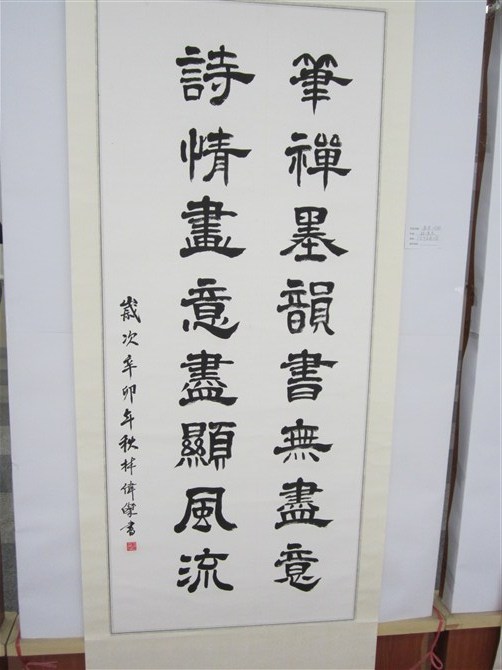 筆禪墨韻書無盡意
詩情畫意盡顯風流
歲次辛卯年秋林偉傑書